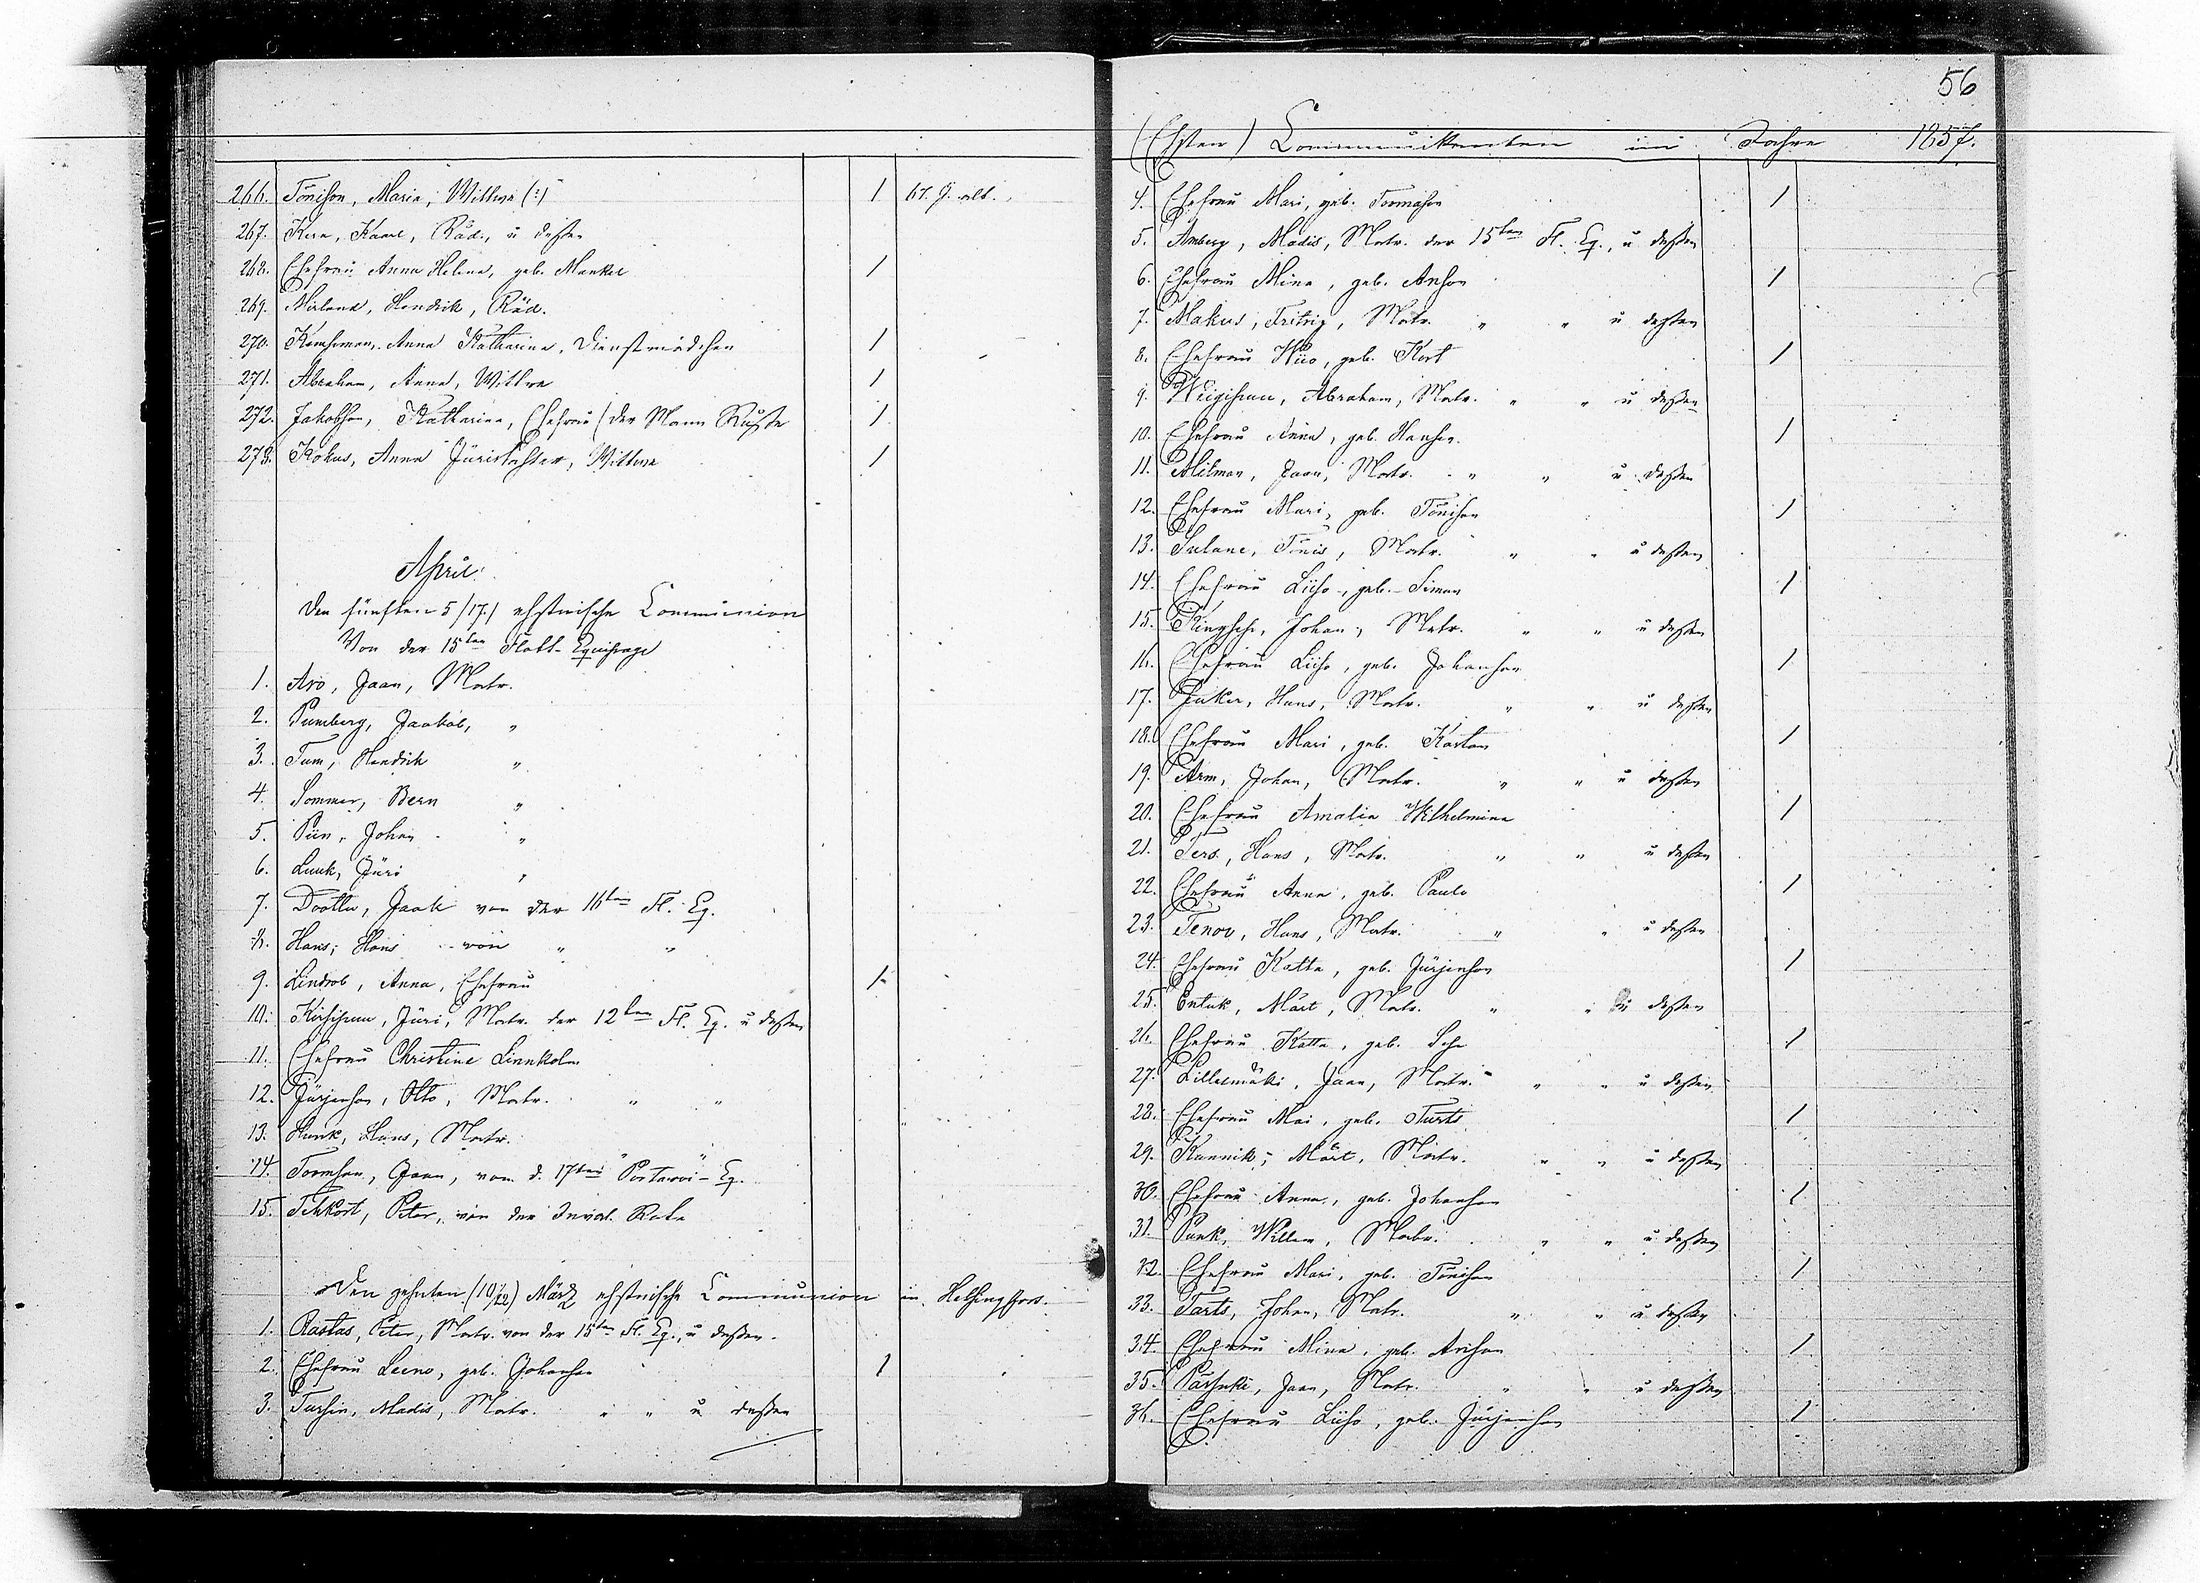 266. Tõnison, Maria, Wittwe (:) 1 67. J. alt.
267. Kera, Kaarl, Räd., u dessen
268. Ehefrau Anna Helena, geb. Mankel 1
269. Mirland, Hendrik, Räd.
270. Anna Katharina, Dienstmädchen 1
271. Abraham, Anna, Wittwe 1
272. Jakobson, Katharina, Ehefrau (der Mann Russe 1
273. Kokus, Anna Jüritochter, Wittwe 1
April.
Den fünften 5/17.) ehstnische Communion
Von der 15ten Flott-Equipage
1. Aro, Jaan, Matr.
2. Pumberg, Jaakob, "
3. Tum, Hendrik "
4. Sommer, Bern "
5. Piin, Johan "
6. Luuk, Jüri "
7. Jaak von der 16ten Fl. Eq.
8. Hans, Hans von " "
9. Lindrob, Anna, Ehefrau 1
10. Jüri, Matr. der 12ten Fl. Eq. u dessen
11. Ehefrau Christine Linnkolm
12. Jürjenson, Otto, Matr. " "
13. Hunk, Hans, Matr. "
14. Toomson, Jaan, von d. 17ten Eq.
15. Tihkort, Peter, von der Invol. Rote
Den zehnten (10/22) März ehstnische Communion in Helsingfors.
1. Rastas, Peter, Matr. von der 15ten Fl. Eq., u dessen
2. Ehefrau Leeno, geb. Johanson 1
3. Tursin, Madis, Matr. " " u dessen
56
(Ehsten) Communikanten im Jahre 1857.
4. Ehefrau Mari, geb. Toomason 1
5. Amberg, Madis, Matr. der 15ten Fl. Eq., u dessen
6. Ehefrau Mina, geb. Anson 1
7. Makus, Matr. " " u dessen
8. Ehefrau geb. Kort 1
9. Abraham, Matr. " " u dessen
10. Ehefrau Anna, geb. Hanson 1
11. Milman, Jaan, Matr. " " u dessen
12. Ehefrau Mari, geb. Tõnison 1
13. Sulane, Tõnis, Matr. " " u dessen
14. Ehefrau Liiso, geb. Siman 1
15. Kingsep, Johan, Matr. " " u dessen
16. Ehefrau Liiso, geb. Johanson 1
17. Hans, Matr. " " u dessen
18. Ehefrau Mari, geb. Karlon 1
19. Arm, Johan, Matr. " " u dessen
20. Ehefrau Amalia Wilhelmina 1
21. Ters, Hans, Matr. " " u dessen
22. Ehefrau Anna, geb. Paulo 1
23. Tenov, Hans, Matr. " " u dessen
24. Ehefrau Katta, geb. Jürjenson 1
25. Entuk, Märt, Matr. " " u dessen
26. Ehefrau Katta, geb. 1
27. Lillemäki, Jaan, Matr. " " u dessen
28. Ehefrau Mai, geb. Turts 1
29. Kunnik, Märt, Matr. " " u dessen
30. Ehefrau Anna, geb. Johanson 1
31. Punk, Willem, Matr. " " u dessen
32. Ehefrau Mari, geb. Tõnison 1
33. Tarts, Johan, Matr. " " u dessen
34. Ehefrau Mina, geb. 1
35. Jaan, Matr. " " u dessen
36. Ehefrau Liiso, geb. Jürjenson 1